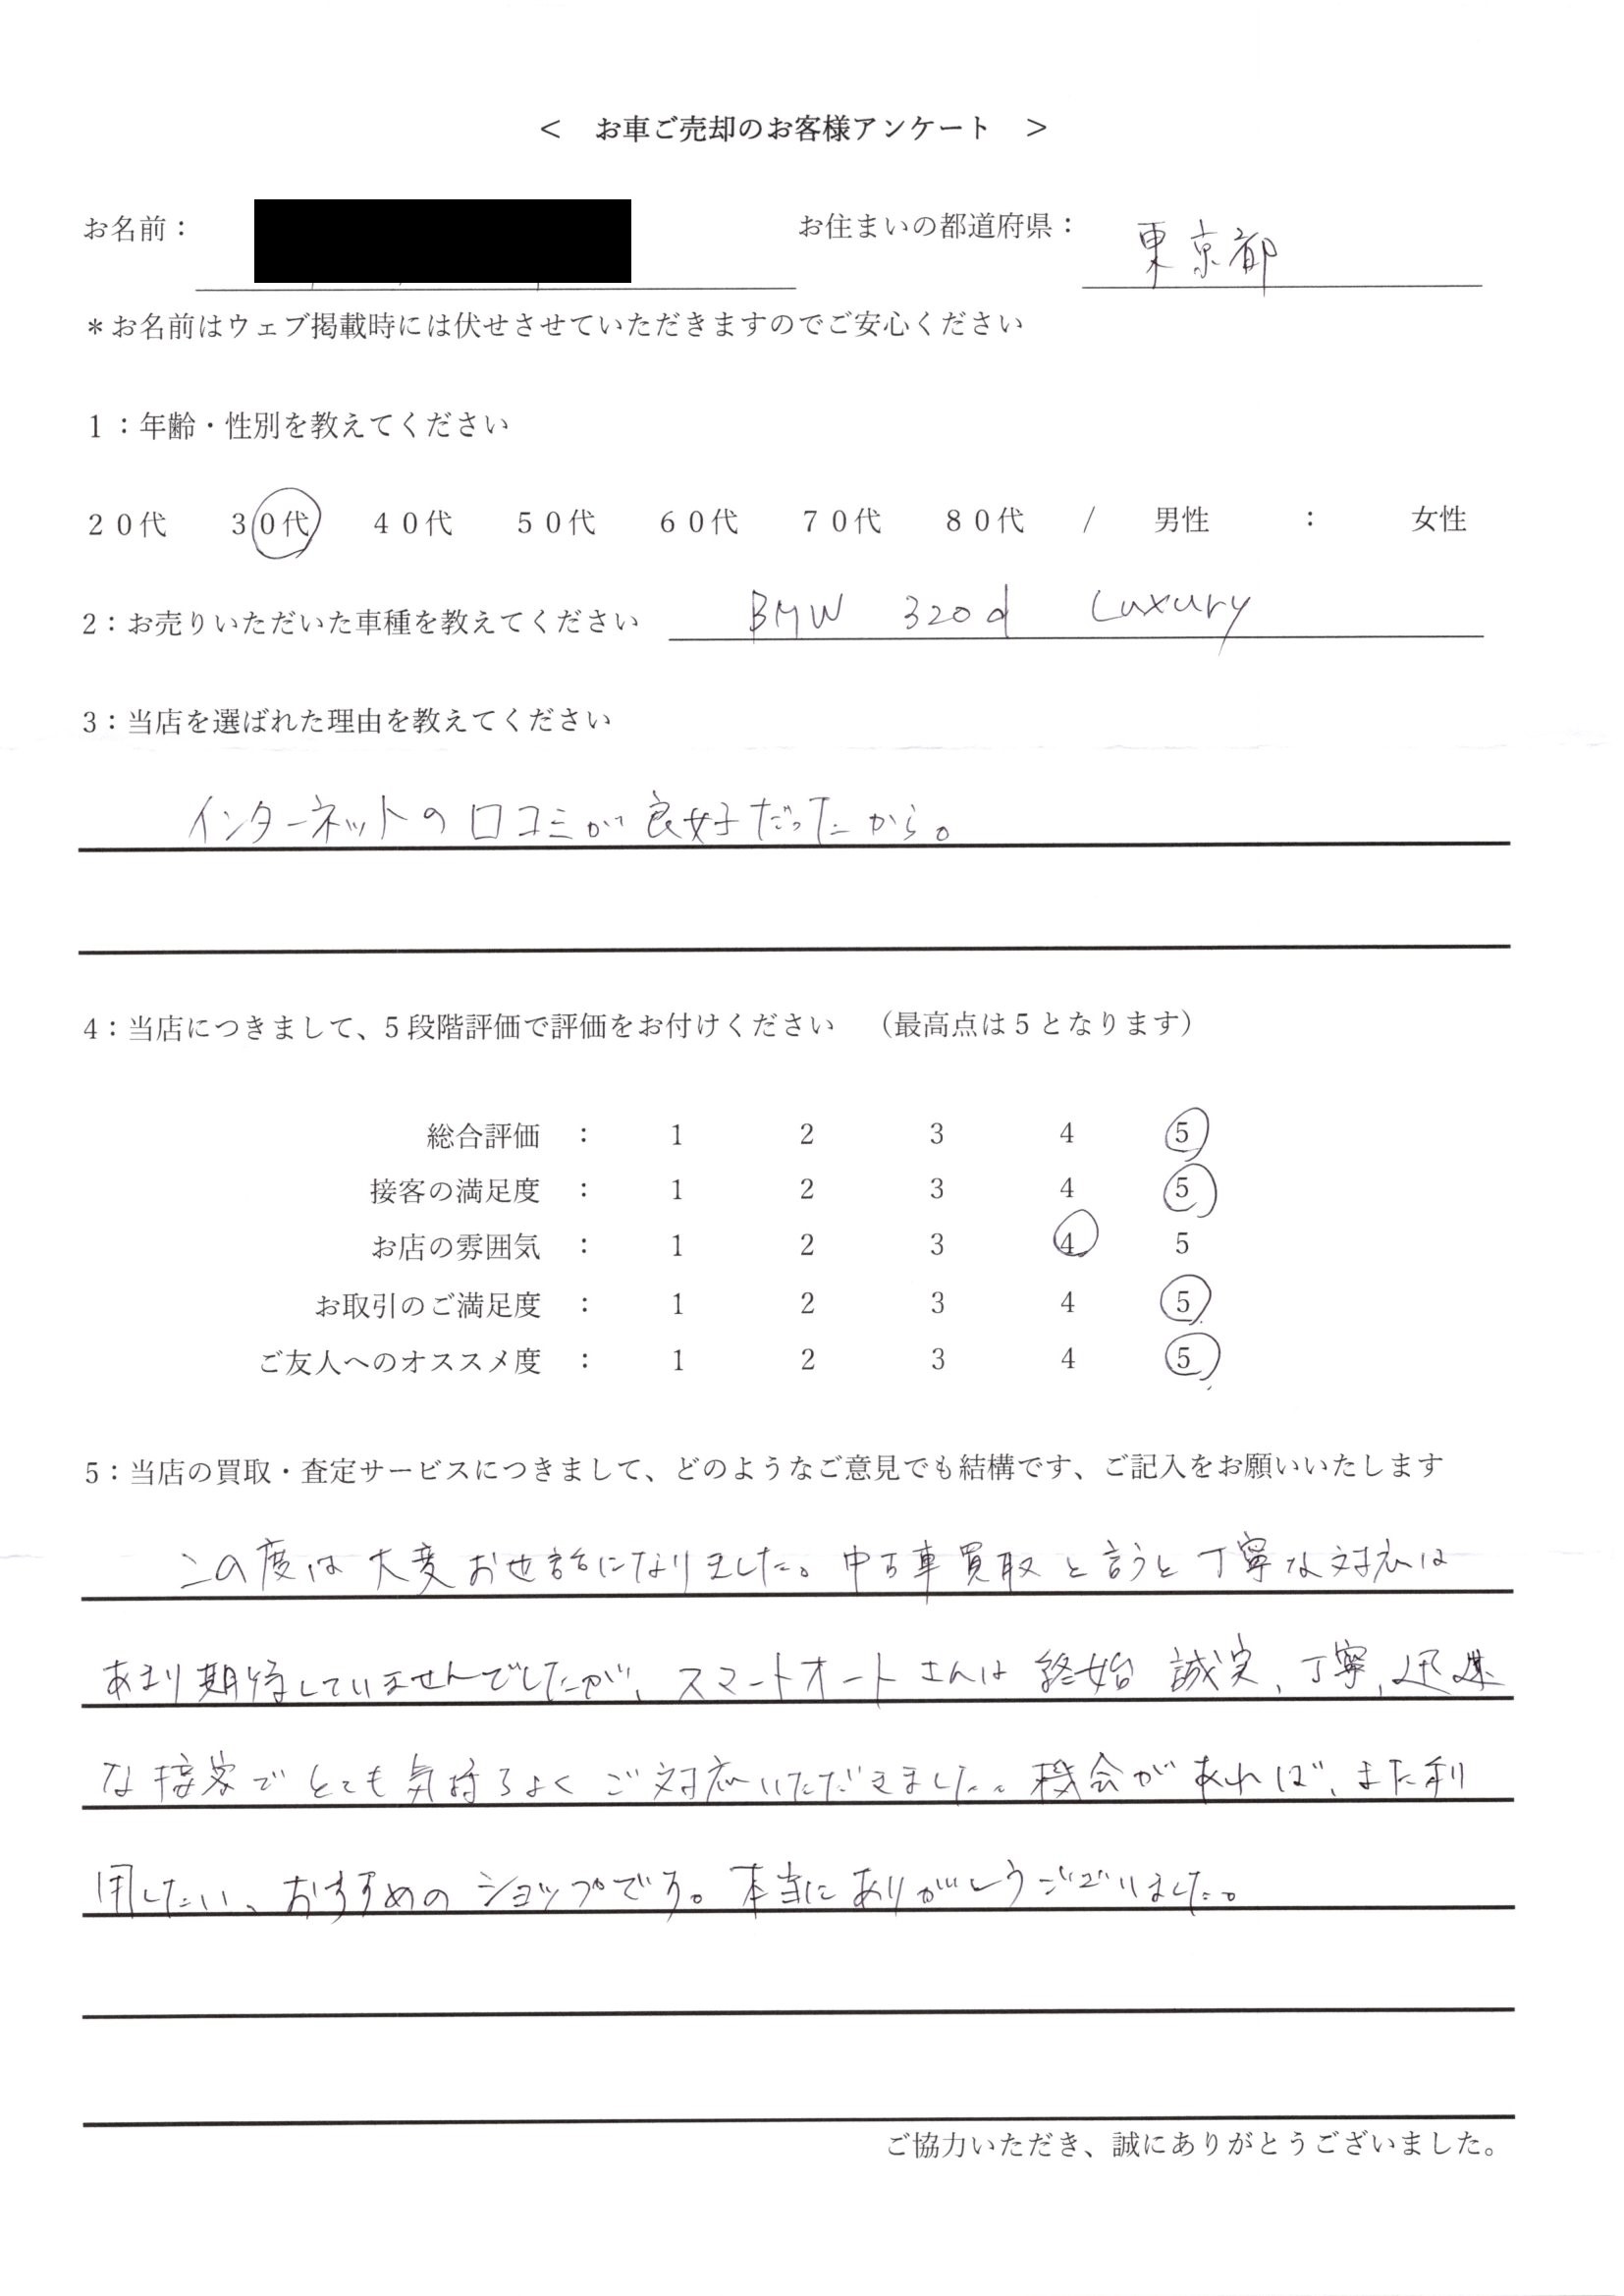 < お車ご売却のお客様アンケート >
お名前： お住まいの都道府県： 東京都
＊お名前はウェブ掲載時には伏せさせていただきますのでご安心ください
1：年齢・性別を教えてください
２０代 ３０代 ４０代 ５０代 ６０代 ７０代 ８０代 / 男性 ： 女性
2：お売りいただいた車種を教えてください BMW 320d Luxury
3：当店を選ばれた理由を教えてください
インターネットの口コミが良好だったから。
4：当店につきまして、5段階評価で評価をお付けください （最高点は5となります）
総合評価 ： 1 2 3 4 5
接客の満足度 ： 1 2 3 4 5
お店の雰囲気 ： 1 2 3 4 5
お取引のご満足度 ： 1 2 3 4 5
ご友人へのオススメ度 ： 1 2 3 4 5
5：当店の買取・査定サービスにつきまして、どのようなご意見でも結構です、ご記入をお願いいたします
この度は大変お世話になりました。中古車買取と言うと丁寧な対応は
あまり期待していませんでしたが、スマートオートさんは終始 誠実、丁寧、迅速
な接客でとても気持ちよくご対応いただきました。機会があれば、また利
用したい、おすすめのショップです。本当にありがとうございました。
ご協力いただき、誠にありがとうございました。